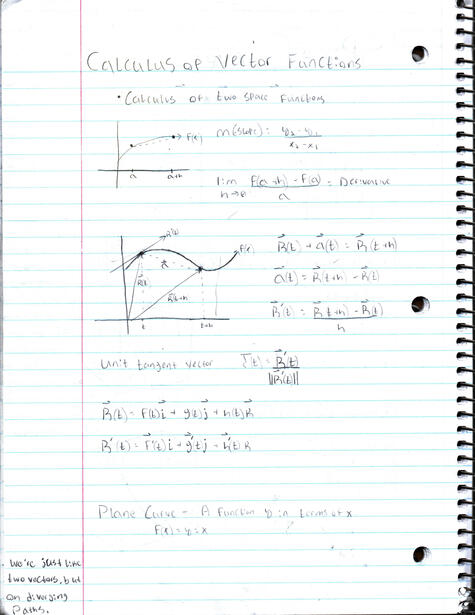 Calculus of Vector Functions
• Calculus of two space Functions
F(x)
a
a+h
m(slope) = y₂-y₁ / x₂-x₁
lim h→0 F(a+h) - F(a) / a = Derivative
R'(t)
F(x)
R(t)
R(t+h)
t
t+h
R⃗(t) + a⃗(t) = R⃗(t+h)
a⃗(t) = R⃗(t+h) - R⃗(t)
R⃗'(t) = R⃗(t+h) - R⃗(t) / h
Unit tangent vector T⃗(t) = R⃗'(t) / ||R⃗'(t)||
R⃗(t) = F(t)i + g(t)j + h(t)k
R⃗'(t) = F'(t)i + g'(t)j - h'(t)k
Plane Curve - A Function y in terms of x
F(x) = y = x
. We're just like
two vectors, but
on diverging
Paths.